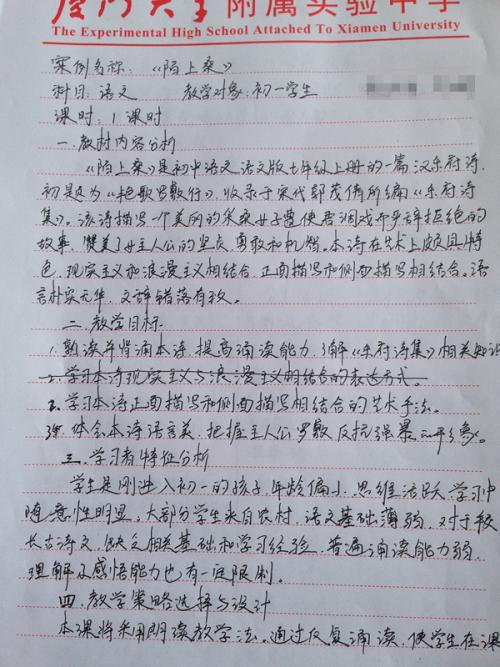 厦门大学附属实验中学
The Experimental High School Attached To Xiamen University
案例名称:《陌上桑》
科目:语文 教学对象:初一学生
课时:1课时
一、教材内容分析
《陌上桑》是初中语文语文版七年级上册的一篇汉乐府诗,
初题为《艳歌罗敷行》,收录于宋代郭茂倩所编《乐府诗
集》。该诗描写一个美丽的采桑女子遭使君调戏而严辞拒绝的
故事,赞美了女主人公的坚贞、勇敢和机智。本诗在艺术上颇具特
色,现实主义和浪漫主义相结合,正面描写和侧面描写相结合。语
言朴实无华,文辞错落有致。
二、教学目标
1.熟读并背诵本诗,提高诵读能力,了解《乐府诗集》相关知识
2.学习本诗现实主义与浪漫主义相结合的表达方式。
2.学习本诗正面描写和侧面描写相结合的艺术手法。
3.体会本诗语言美,把握主人公罗敷反抗强暴的形象。
三、学习者特征分析
学生是刚进入初一的孩子,年龄偏小,思维活跃,学习中
随意性明显;大部分学生来自农村,语文基础薄弱,对于较
长古诗文,缺乏相关基础和学习经验,普遍诵读能力弱,
理解及感悟能力也有一定限制。
四、教学策略选择与设计
本课将采用朗读教学法。通过反复诵读,使学生在课